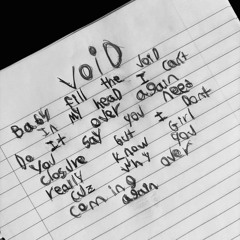 VOID
Baby fill the void
In my head I Cant
Do It over again
you say you need
closure but I Dont
really know Girl
cuz why you
coming over
again